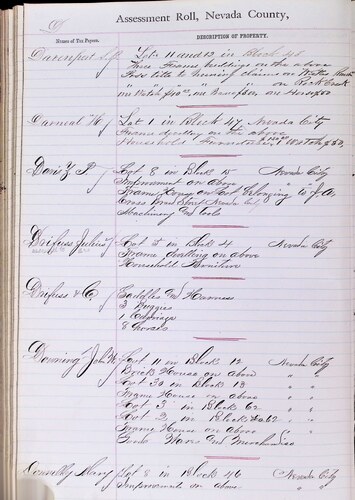 Assessment Roll, Nevada County,
Names of Tax Payers.
DESCRIPTION OF PROPERTY.
Davenport
Lots 11 and 12 in Block 48
Three Frame buildings on the above
Poss title to mining claims on
on Rock Creek
on Watch $40.00, on on Horse $50
Lot 1 in Block 47 Nevada City
Frame dwelling on the above
Household Furniture 1 Watch $50
Davis Z P
Lot 8 in Block 15 Nevada City
Improvement on above
Frame House on Lot belonging to J. A.
Machinery and tools
Dreifuss Julius
Lot 15 in Block 4 Nevada City
Frame dwelling on above
Household Furniture
Dreifuss & C.
Saddles and Harness
3 Buggies
1 Carriage
8 Horses
Downing John W
Lot 11 in Block 12 Nevada City
Brick House on above " "
Lot 30 in Block 13 " "
Frame House on above " "
Lot 3 in Block 62 " "
Lot 2 in Block 62 " "
Frame House on above " "
Wares and Merchandise
Donnelly Mary
Lot 8 in Block 46 Nevada City
Improvements on above " "